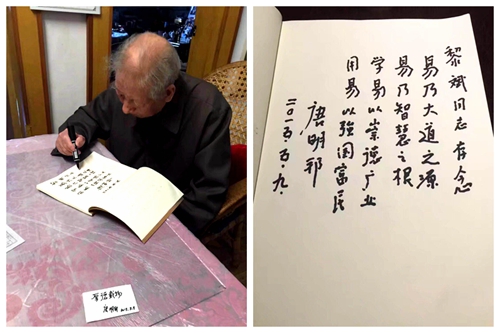 黎斌同志存念
易乃大道之源
易乃智慧之根
学易以崇德广业
用易以强国富民
唐明邦
二〇一五.五.九.